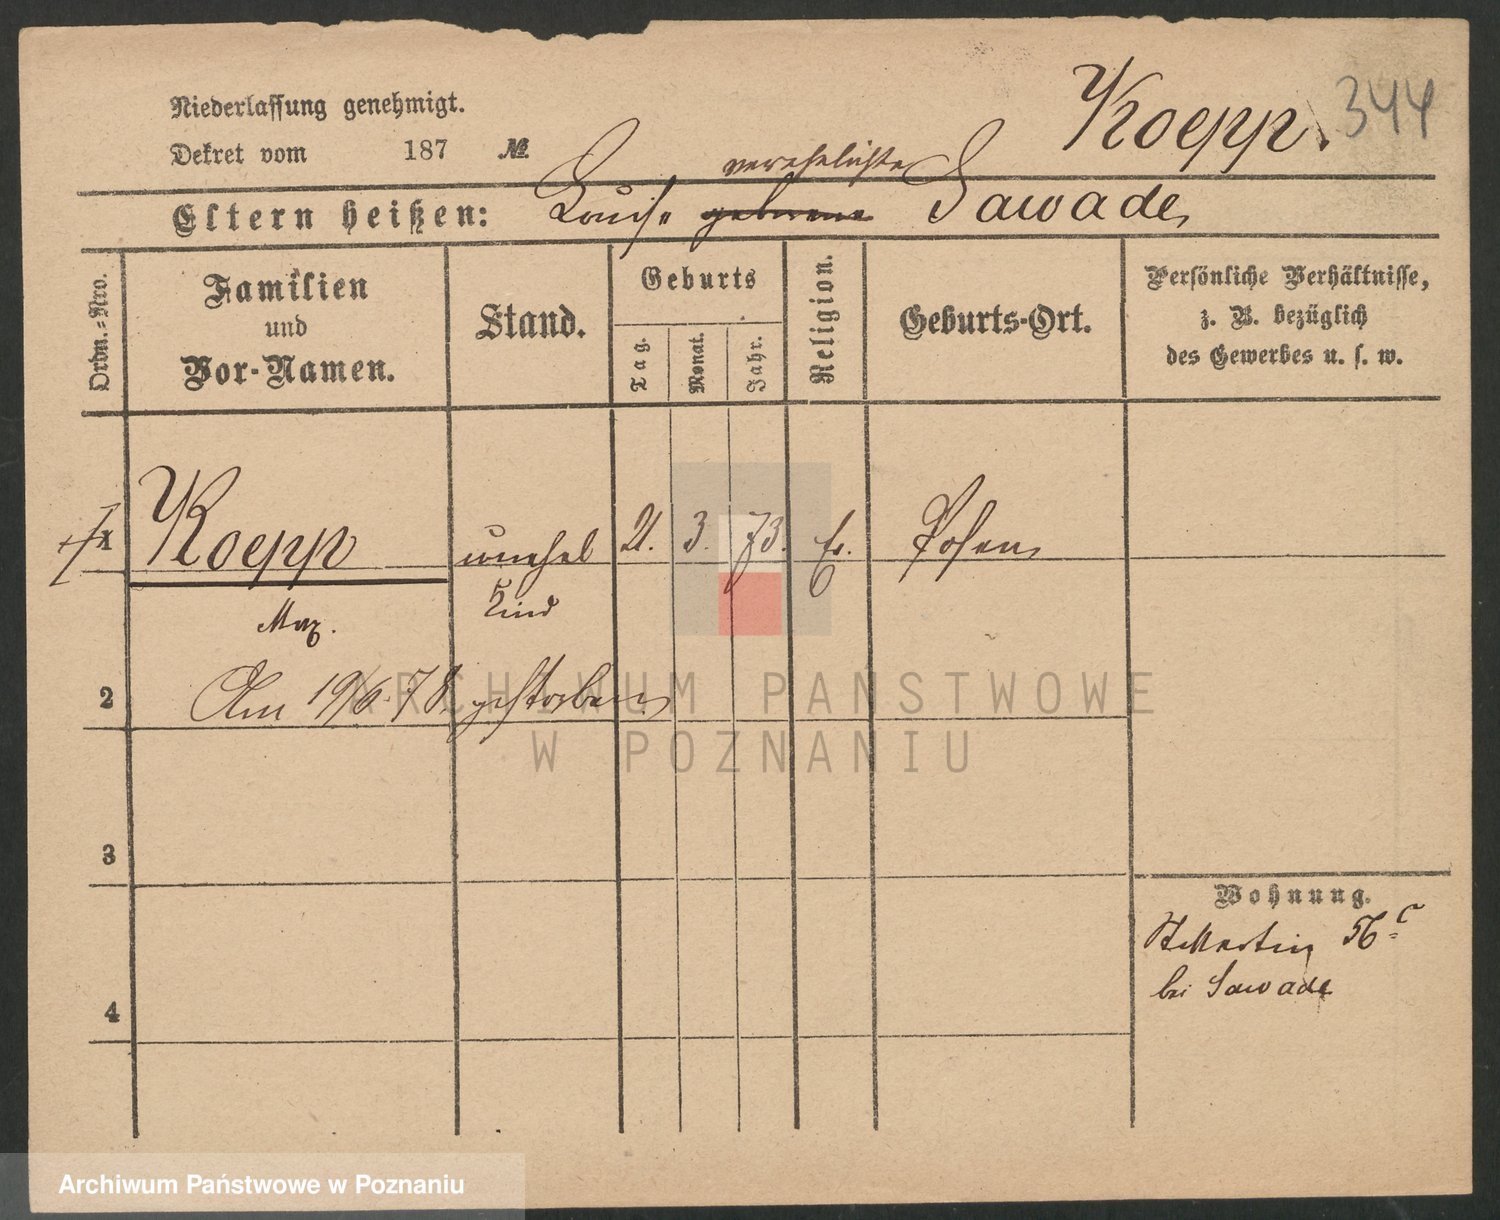 Niederlassung genehmigt.
Koepp. 344
Dekret vom 187 №
verehelichte
Eltern heißen: Louise geborene Sawade,
Ordn.-Nro.
Familien und Vor-Namen.
Stand.
Geburts
Tag.
Monat.
Jahr.
Religion.
Geburts-Ort.
Persönliche Verhältnisse,
z. B. bezüglich
des Gewerbes u. s. w.
1 Koepp unehel 21. 3. 73. Ev. Posen
Max. Kind
2 Am 19/6. 78. gestorben
3
Wohnung.
St Martin 56 c
bei Sawade
4
ARCHIWUM PAŃSTWOWE
W POZNANIU
Archiwum Państwowe w Poznaniu